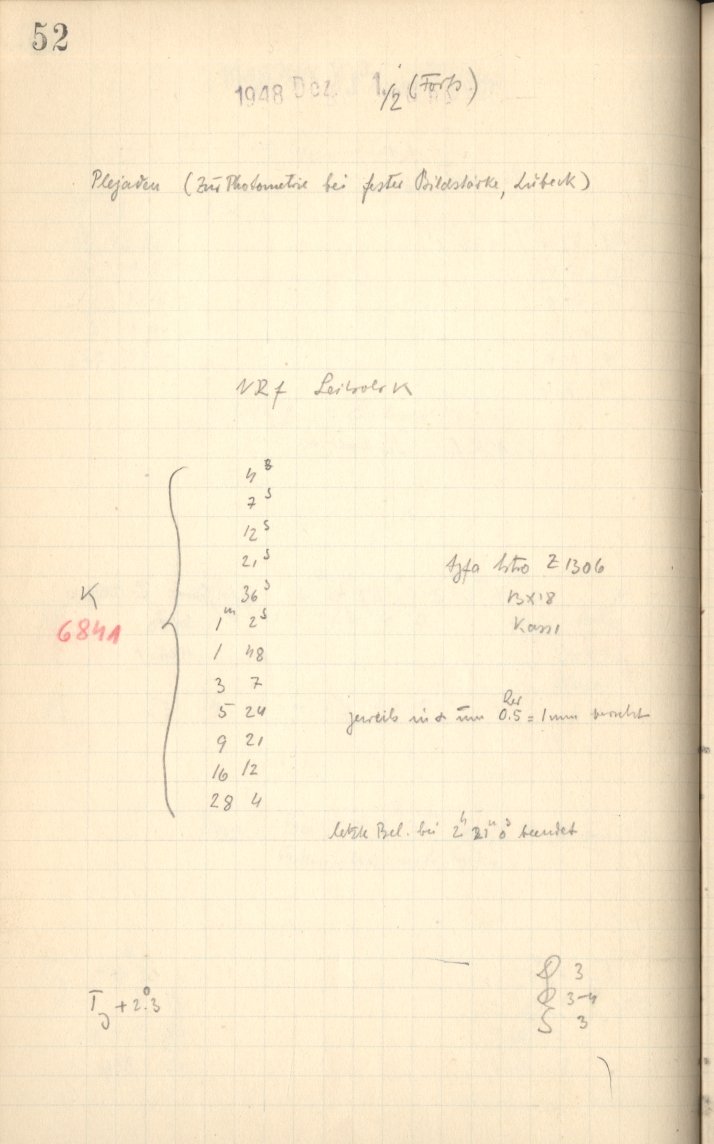 52
1948 Dez. 1./2 (Forts)
Plejaden (Zur Photometrie bei fester Bildstärke, Lübeck)
4ˢ
7ˢ
12ˢ
21ˢ
36ˢ
1ᵐ 2ˢ
1 48
3 7
5 24
9 21
16 12
28 4
K
6841
Agfa Astro Z 1306
13×18
Kass 1
jeweils in α um 0.5 = 1 mm
letzte Bel. bei 2ʰ 21ᵐ 0ˢ beendet
T + 2°.3
3
3-4
3